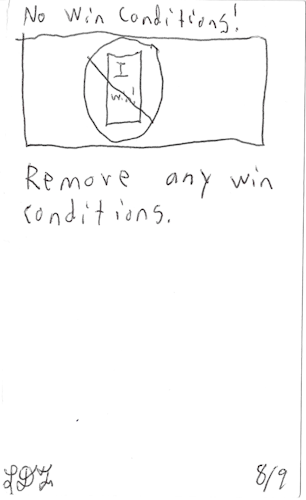 No Win Conditions!
I
win!
Remove any win
conditions.
8/9